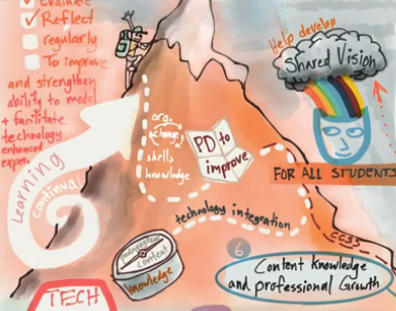 Evaluate
Reflect
regularly
To improve
and strengthen
ability to model
+ facilitate
technology
enhanced
exper.
Learning
continual
org.
change
skills
knowledge
PD to
improve
technology integration
pedagogical
content
knowledge
Help develop
Shared Vision
FOR ALL STUDENTS
CCSS
6
Content Knowledge
and professional Growth
TECH